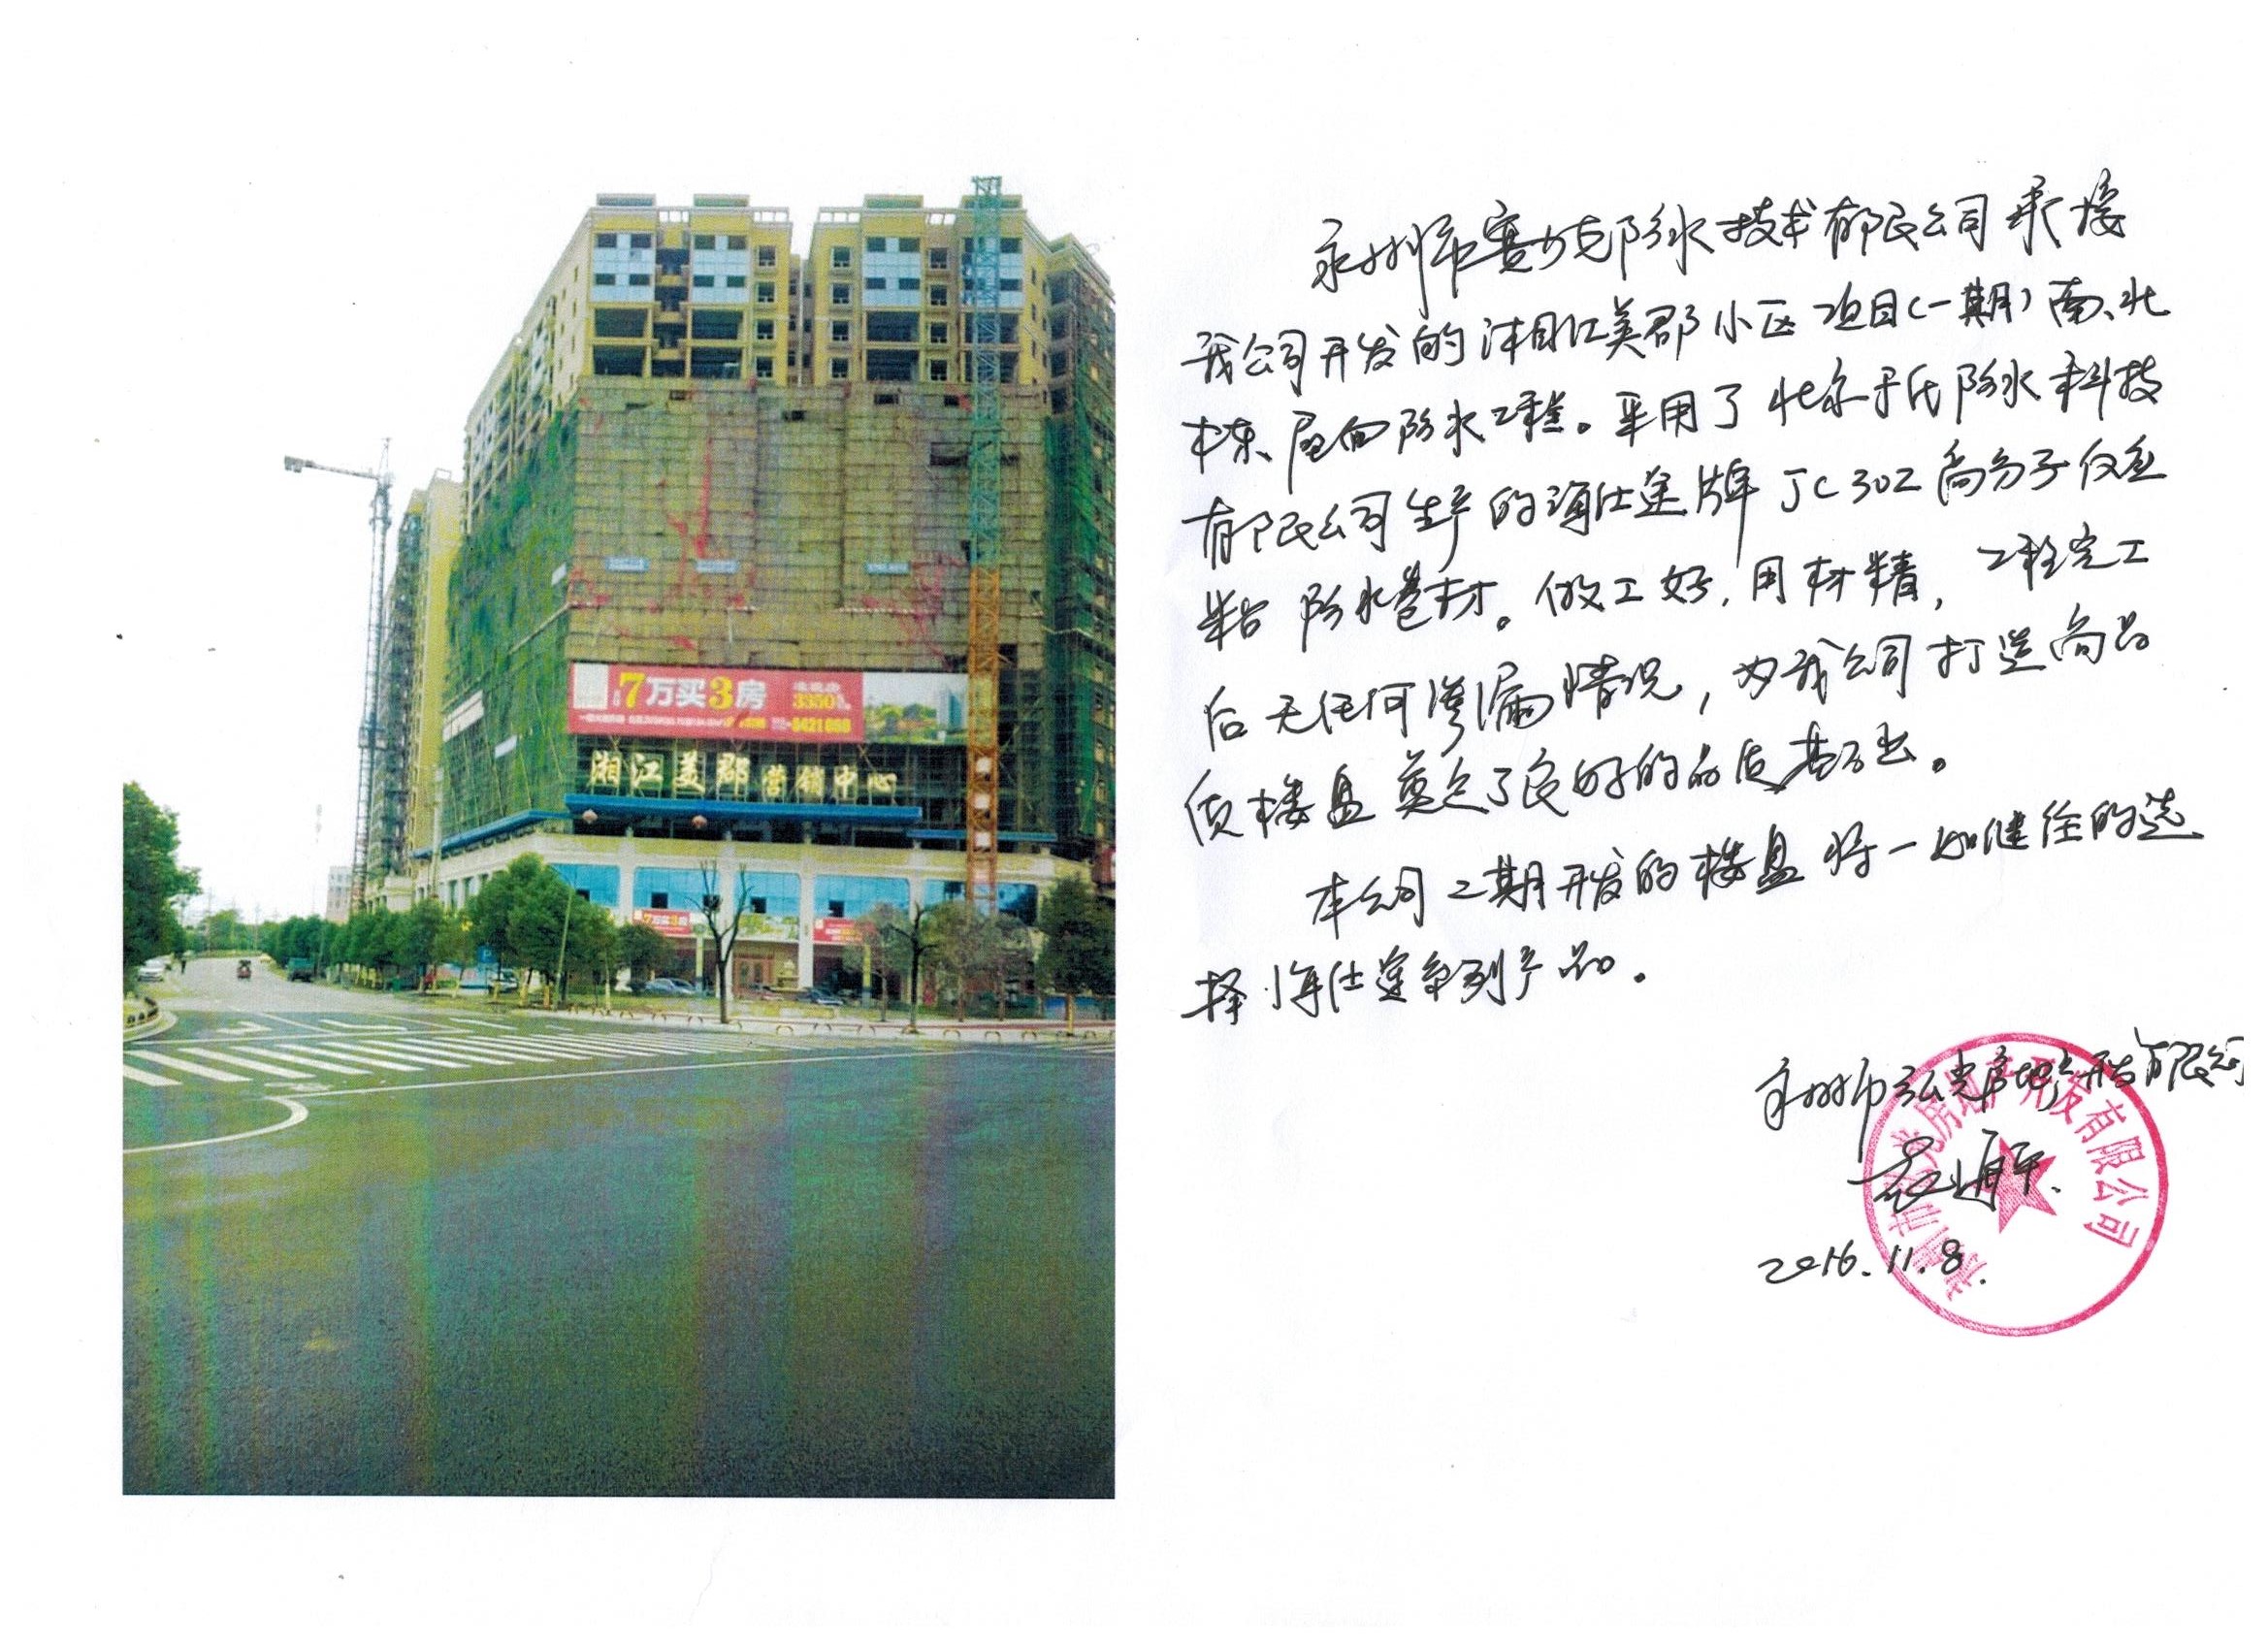 7万买3房
3350
8421888
湘江美郡营销中心
7万买3房
永州市赛力克防水技术有限公司承接
我公司开发的湘江美郡小区项目(一期)南、北
栋、屋面防水工程。采用了北京于氏防水科技
有限公司生产的海仕途牌JC302高分子仅应
粘防水卷材。做工好,用材精,工程完工
后无任何渗漏情况,为我公司打造高品
质楼盘奠定了良好的品质基础。
本公司二期开发的楼盘将一如继往的选
择海仕途系列产品。
永州市弘光房地产开发有限公司
通平.
2016.11.8.
永州市弘光房地产开发有限公司